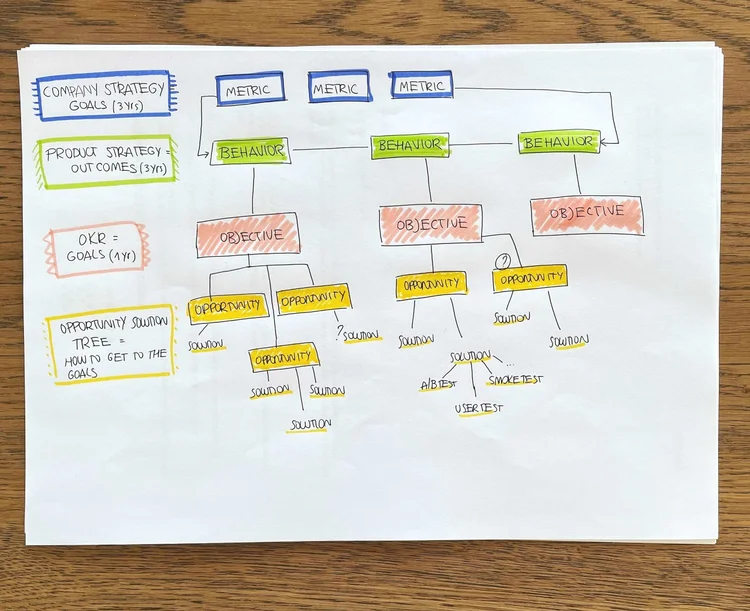 COMPANY STRATEGY
GOALS (3 Yrs)
METRIC
METRIC
METRIC
PRODUCT STRATEGY =
OUTCOMES (3 Yrs)
BEHAVIOR
BEHAVIOR
BEHAVIOR
OKR =
GOALS (1 yr)
OBJECTIVE
OBJECTIVE
OBJECTIVE
OPPORTUNITY SOLUTION
TREE =
HOW TO GET TO THE
GOALS
OPPORTUNITY
OPPORTUNITY
OPPORTUNITY
?
OPPORTUNITY
SOLUTION
? SOLUTION
SOLUTION
SOLUTION
SOLUTION
OPPORTUNITY
SOLUTION
SOLUTION
SOLUTION
SOLUTION
...
A/B TEST
SMOKE TEST
USER TEST